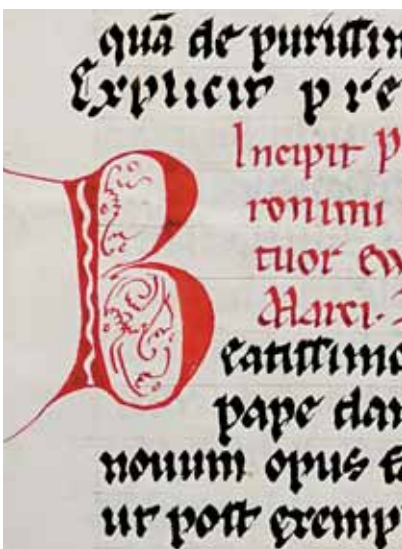 quā de purissim
Explicit pre
Incipit P
ronimi
tuor ew
Marci.
B eatissimo
pape dam
nouum opus fa
ur post exemp